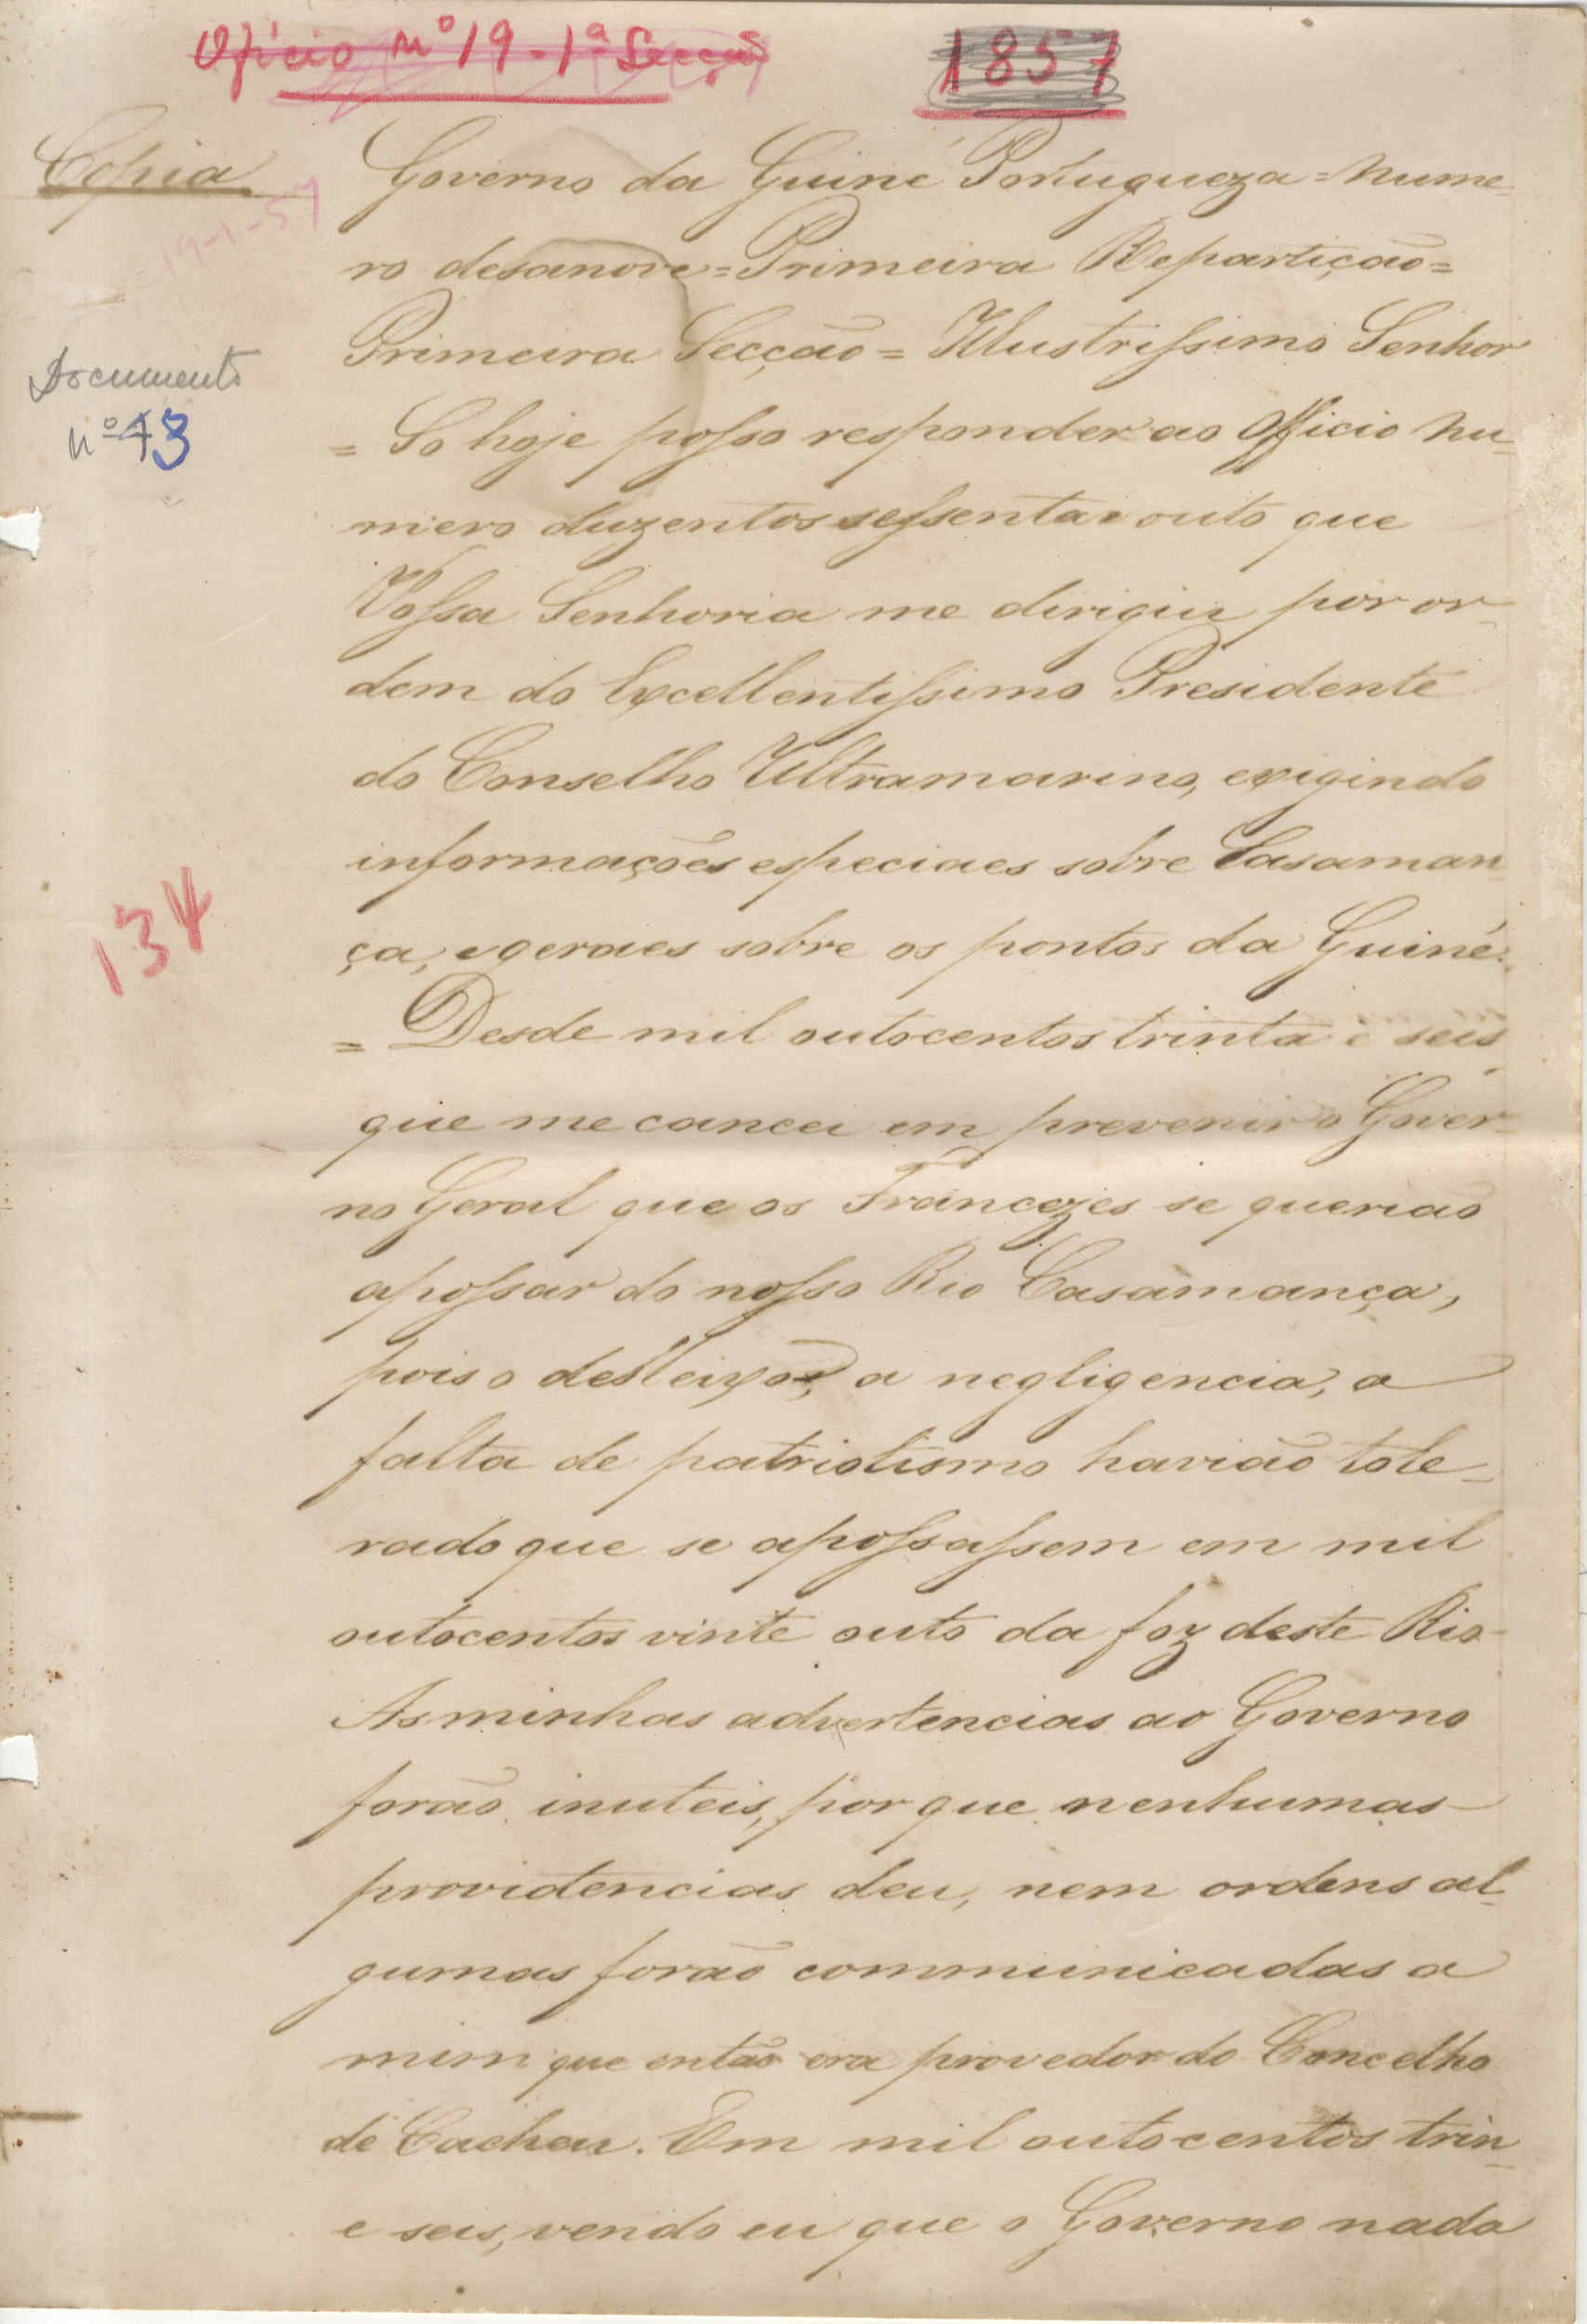 Oficio Nº 19 - 1ª Secção
1857
Copia
19-1-57
Documento
nº 13
134
Governo da Guiné Portugueza = Nume-
ro desanove = Primeira Repartição =
Primeira Secção = Illustrissimo Senhor
= So hoje posso responder ao Officio nu-
mero duzentos sessenta e outo que
Vossa Senhoria me dirigiu por or-
dem do Excellentissimo Presidente
do Conselho Ultramarino, exigindo
informações especiaes sobre Casaman-
ça, e geraes sobre os pontos da Guiné.
= Desde mil outocentos trinta e seis
que me cancei em prevenir o Gover-
no Geral que os Francezes se querião
apossar do nosso Rio Casamança,
pois o desleixo, a negligencia, a
falta de patriotismo havião tole-
rado que se apossassem em mil
outocentos vinte outo da foz deste Rio
As minhas advertencias ao Governo
forão inuteis, por que nenhumas
providencias deu, nem ordens al-
gumas forão communicadas a
mim que então era provedor do Concelho
de Cacheu. Em mil outocentos trin-
e seis, vendo eu que o Governo nada